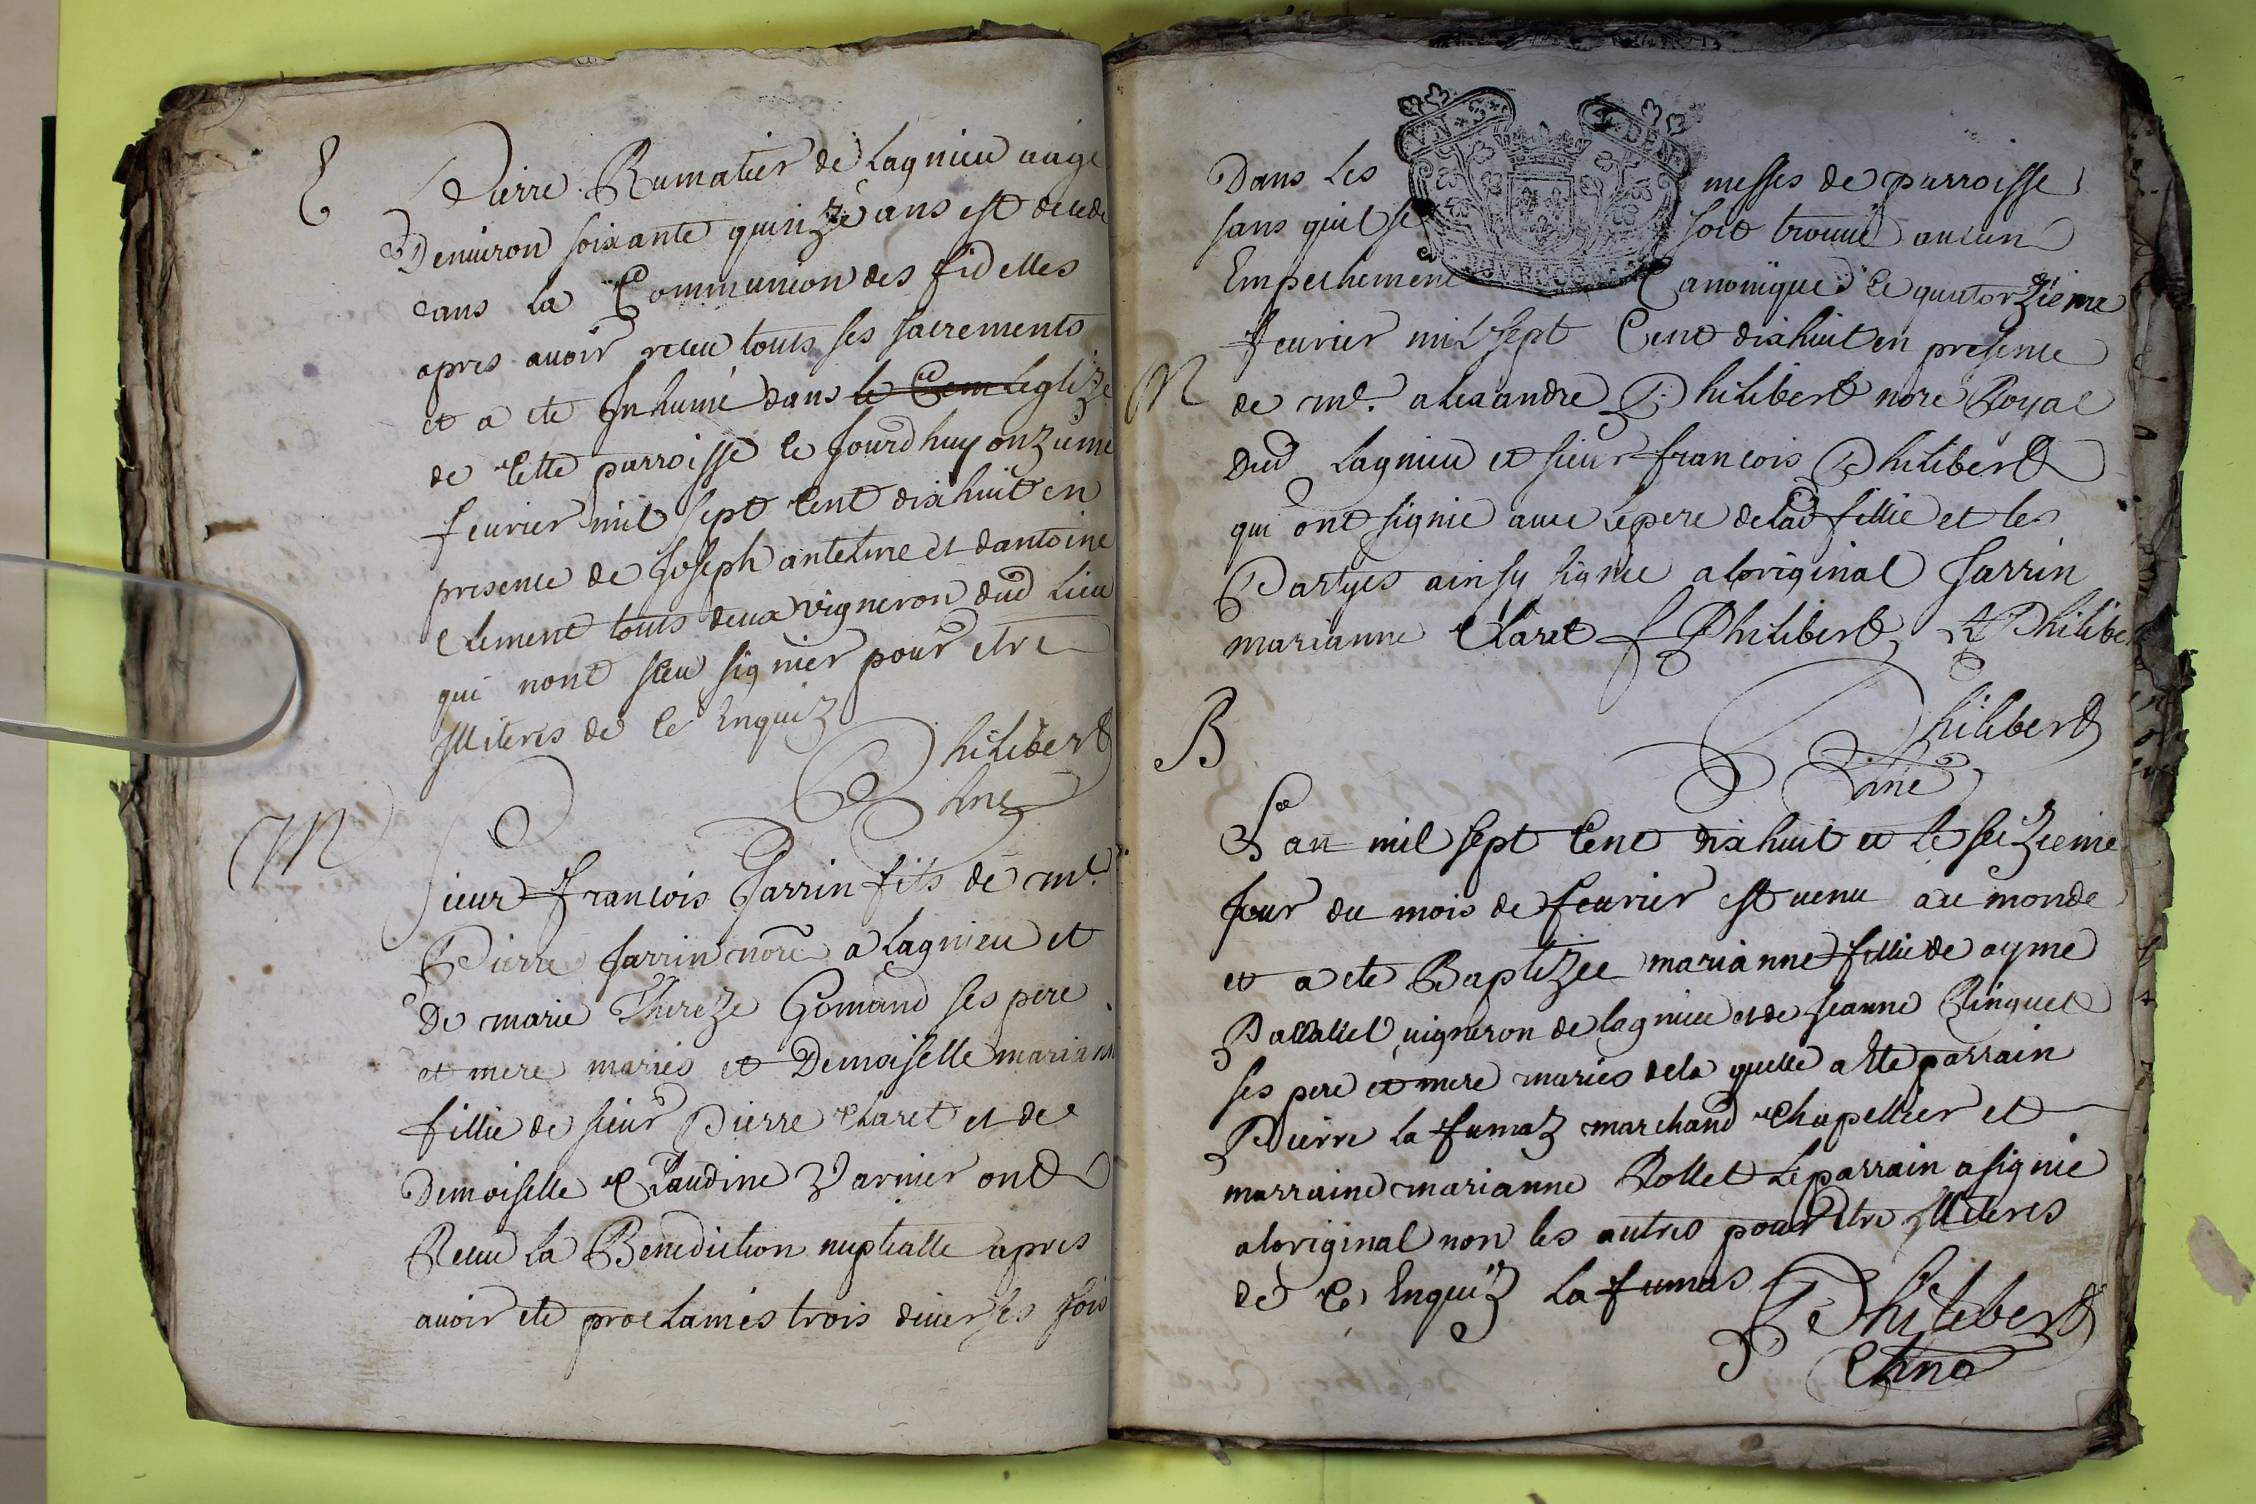 E
Pierre Rumatier de Lagnieu aagé
Denuiron soixante quinze ans est decede
dans la Communion des fidelles
apres auoir receu touts ses sacrements
et a ete Inhumé dans le Cem Leglize
de Cette parroisse le Jourdhuy onzieme
feurier mil sept Cent dixhuit en
presence de Joseph antelme et dantoine
Clement touts deux vigneron dud Lieu
qui nont sceu signier pour etre
Illiteres de Ce Enquiz
Philibert
M
Sieur francois Jarrin fils de me.
Pierre Jarrin nore a Lagnieu et
De marie Thereze Gomand ses pere
et mere maries et Demoiselle mariann
fillie de sieur Pierre Claret et de
Demoiselle Claudine Varnier ont
Receu La Benediction nuptialle apres
auoir ete proclamés trois diuerses fois
VN S. 4. DEN.
Dans Les messes de parroisse
sans quil se soit trouué aucun
Empechement Canonique Le quatorzieme
feurier mil sept Cent dixhuit en presence
M
de me. alexandre Philibert nore Royal
dud Lagnieu et sieur francois Philibert
qui ont signie auec Le pere delad fillie et les
Partyes ainsy signie a loriginal Jarrin
marianne Claret f Philibert, A Philibe
Philibert
B
Lan mil sept Cent dixhuit et le seizieme
Jour du mois de feurier est uenu au monde
et a ete Baptizee marianne fillie de ayme
vigneron de lagnieu et de Jeanne Ringuet
ses pere et mere maries de la quelle a ete parrain
Pierre La fumaz marchand Chapellier et
marraine marianne Rollet Le parrain a signie
a loriginal non les autres pour Etre Illiteres
de Ce Enquiz La fumas
Philibert